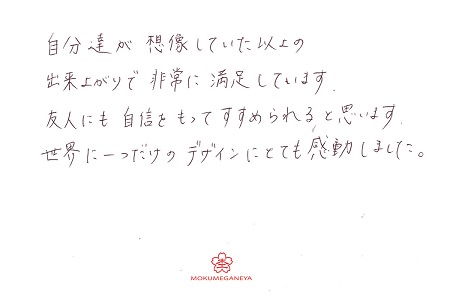 自分達が想像していた以上の
出来上がりで非常に満足しています.
友人にも自信をもってすすめられると思います.
世界に一つだけのデザインにとても感動しました。
MOKUMEGANEYA